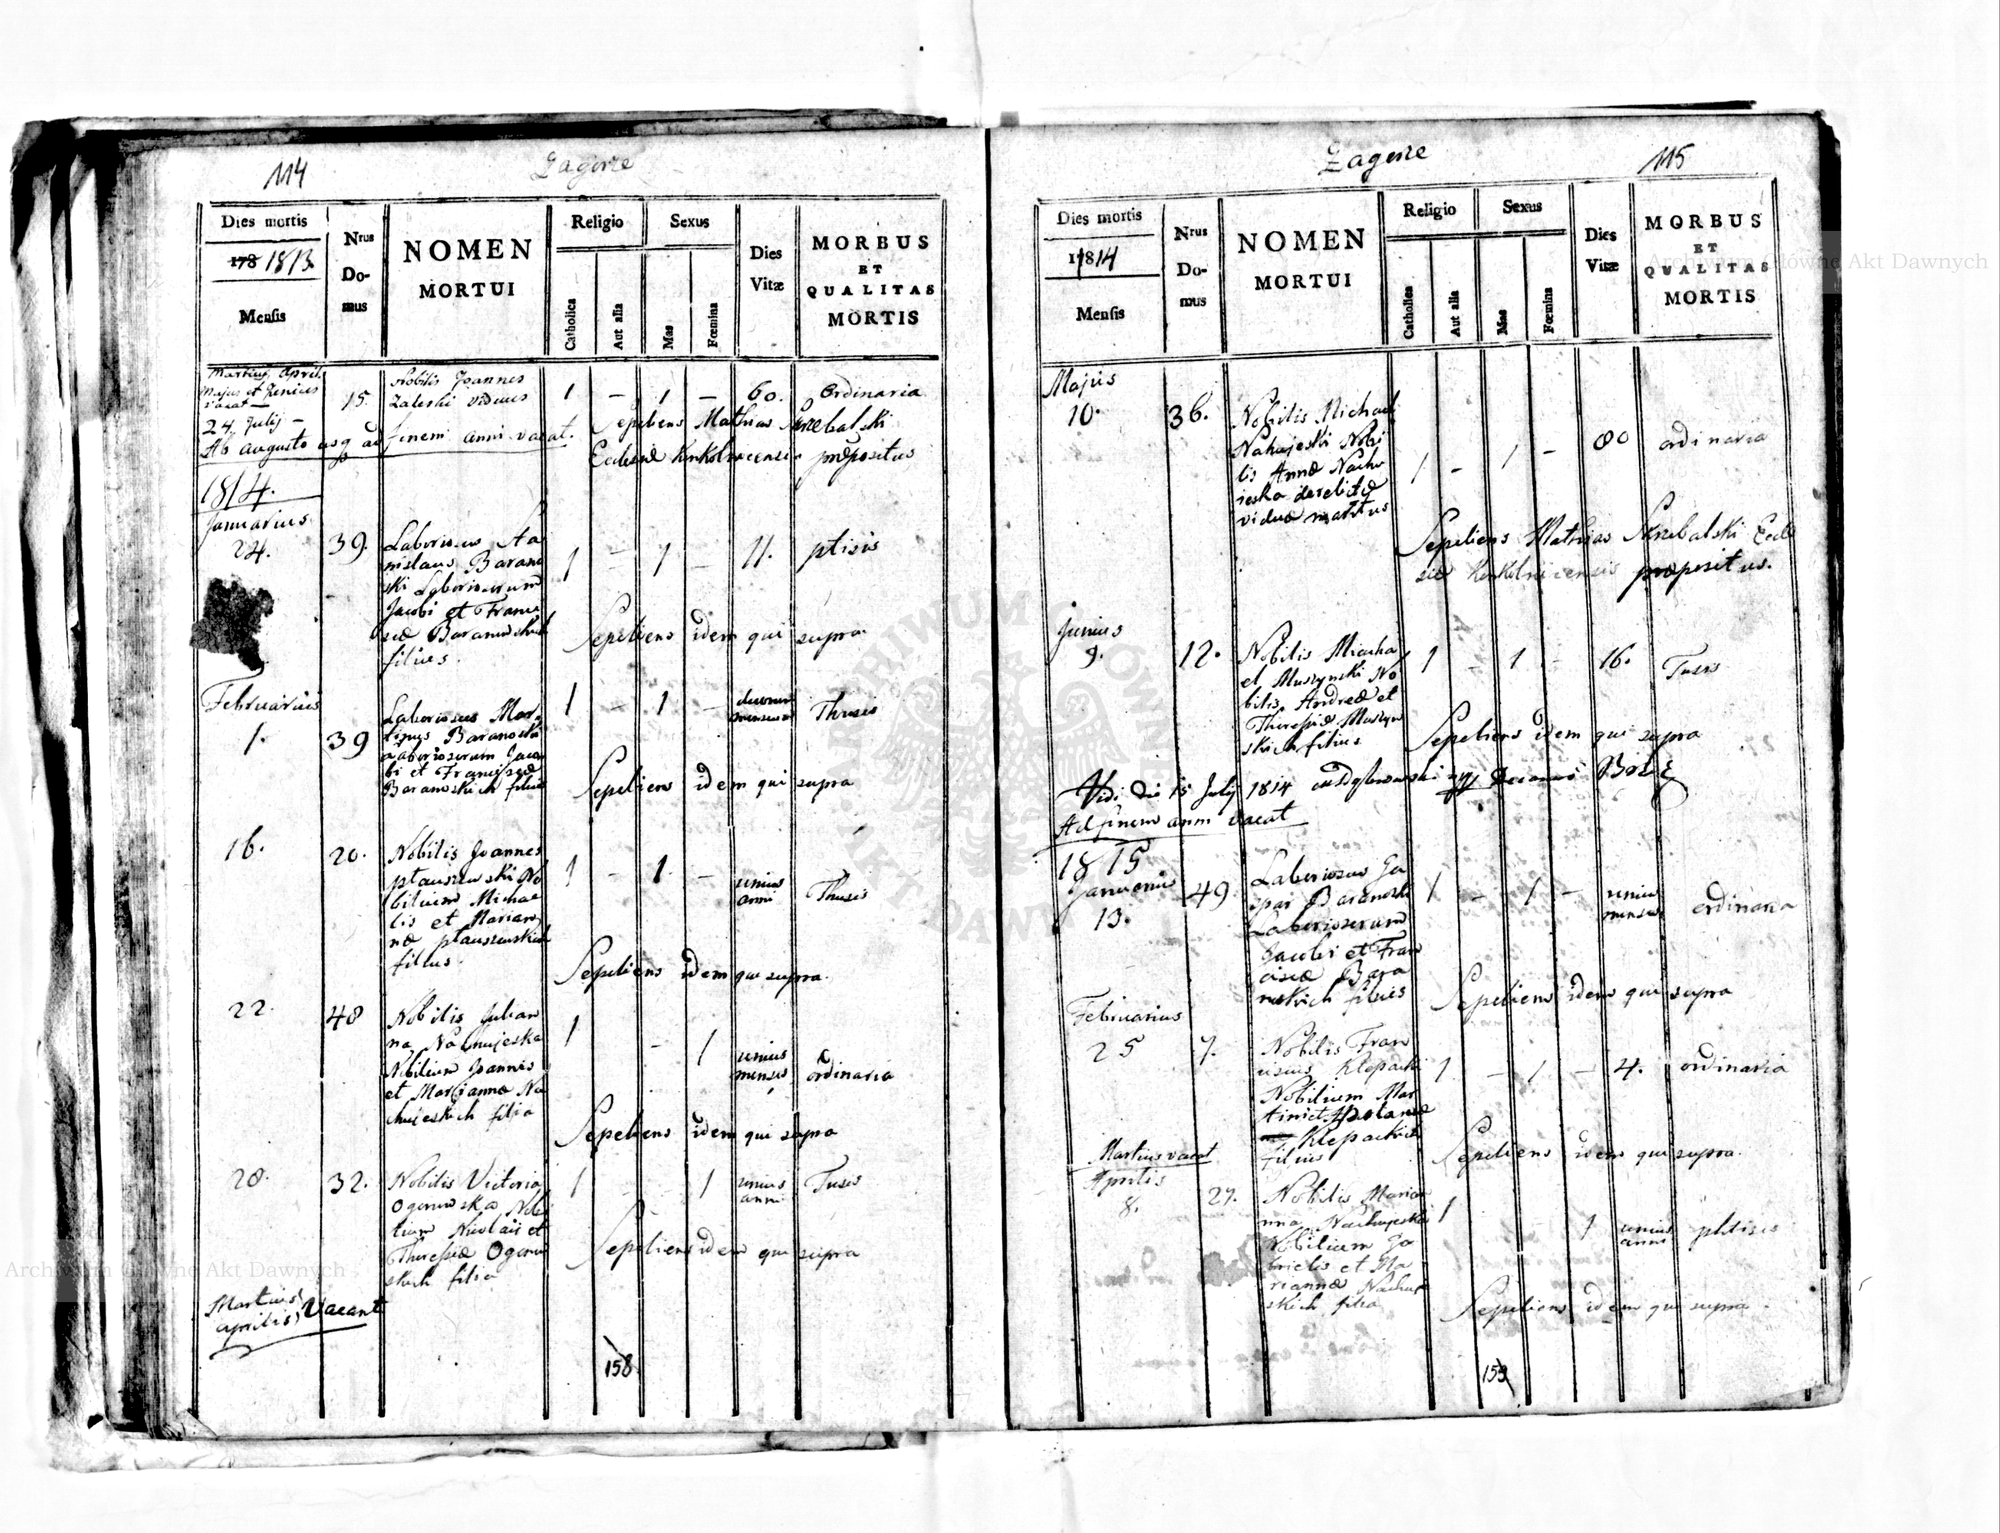 114
Zagorze
Dies mortis
178 1813.
Mensis
Nrus
Do-
mus
NOMEN
MORTUI
Religio
Catholica
Aut alia
Sexus
Mas
Fœmina
Dies
Vitæ
MORBUS
ET
QUALITAS
MORTIS
Martius, April.
Majus et Junius
vacat
24. Julij
15.
Nobilis Joannes
Zaleski viduus
1 - 1 - 60. Ordinaria
Ab augusto usq ad finem anni vacat.
Sepeliens Mathias
Ecclesiæ præpositus
1814.
Januarius
24.
39.
Laboriosus Sta
nislaus Baranow
ski Laboriosorum
Jacobi et Franci
scæ Baranowskich
filius.
1 - 1 - 11. ptisis
Sepeliens idem qui supra
Februarius
1.
39
Laboriosus Mar
tinus Baranoski
Laboriosorum Jaco
bi et Franciscæ
Baranoskich filius
1 - 1 - duorum
mensium
Thusis
Sepeliens idem qui supra
16.
20.
Nobilis Joannes
ptaszewski No
bilium Micha
lis et Marian
næ
filius.
1 - 1 - unius
anni
Thusis
Sepeliens idem qui supra
22.
48
Nobilis Julian
na Nahujeska
Nobilium Joannis
et Mariannæ Na
hujeskich filia
1 - 1 unius
mensis
ordinaria
Sepeliens idem qui supra
28.
32.
Nobilis Victoria
Ogonowska Nobi
lium Nicolai et
Theresiæ Ogonow
skich filia
1 - - 1 unius
anni
Tusis
Sepeliens idem qui supra
Martius
aprilis Vacant
158
Zagorze
115
Dies mortis
1814
Mensis
Nrus
Do-
mus
NOMEN
MORTUI
Religio
Catholica
Aut alia
Sexus
Mas
Fœmina
Dies
Vitæ
MORBUS
ET
QUALITAS
MORTIS
Majus
10.
36.
Nobilis Michael
Nahujeski Nobi
lis Annæ Nachu
ieska derelictæ
viduæ maritus
1 - 1 - 80 ordinaria
Sepeliens Mathias Eccle
siæ præpositus.
Junius
9.
12.
Nobilis Micha
el Muszynski No
bilis Andreæ et
Theresiæ Muszyn
skich filius
1 - 1 - 16. Tusis
Sepeliens idem qui supra
Vidi Die 15 July 1814
Ad finem anni vacat
1815
Januarius
13.
49.
Laboriosus Ga
spar Baranoski
Laboriosorum
Jacobi et Fran
ciscæ Bara
noskich filius
1 - 1 - unius
mensis
ordinaria
Sepeliens idem qui supra
Februarius
25
7.
Nobilis Fran
ciscus Klepacki
Nobilium Mar
tini et
Klepackich
filius
1 - 1 - 4. ordinaria
Sepeliens idem qui supra.
Martius vacat
Aprilis
8.
27.
Nobilis Maria
nna Nachujeska
Nobilium Ga
brielis et Ma
riannæ Nachuie
skich filia
1 1 unius
anni
phtisis
Sepeliens idem qui supra.
159
Archiwum Główne Akt Dawnych
Archiwum Główne Akt Dawnych